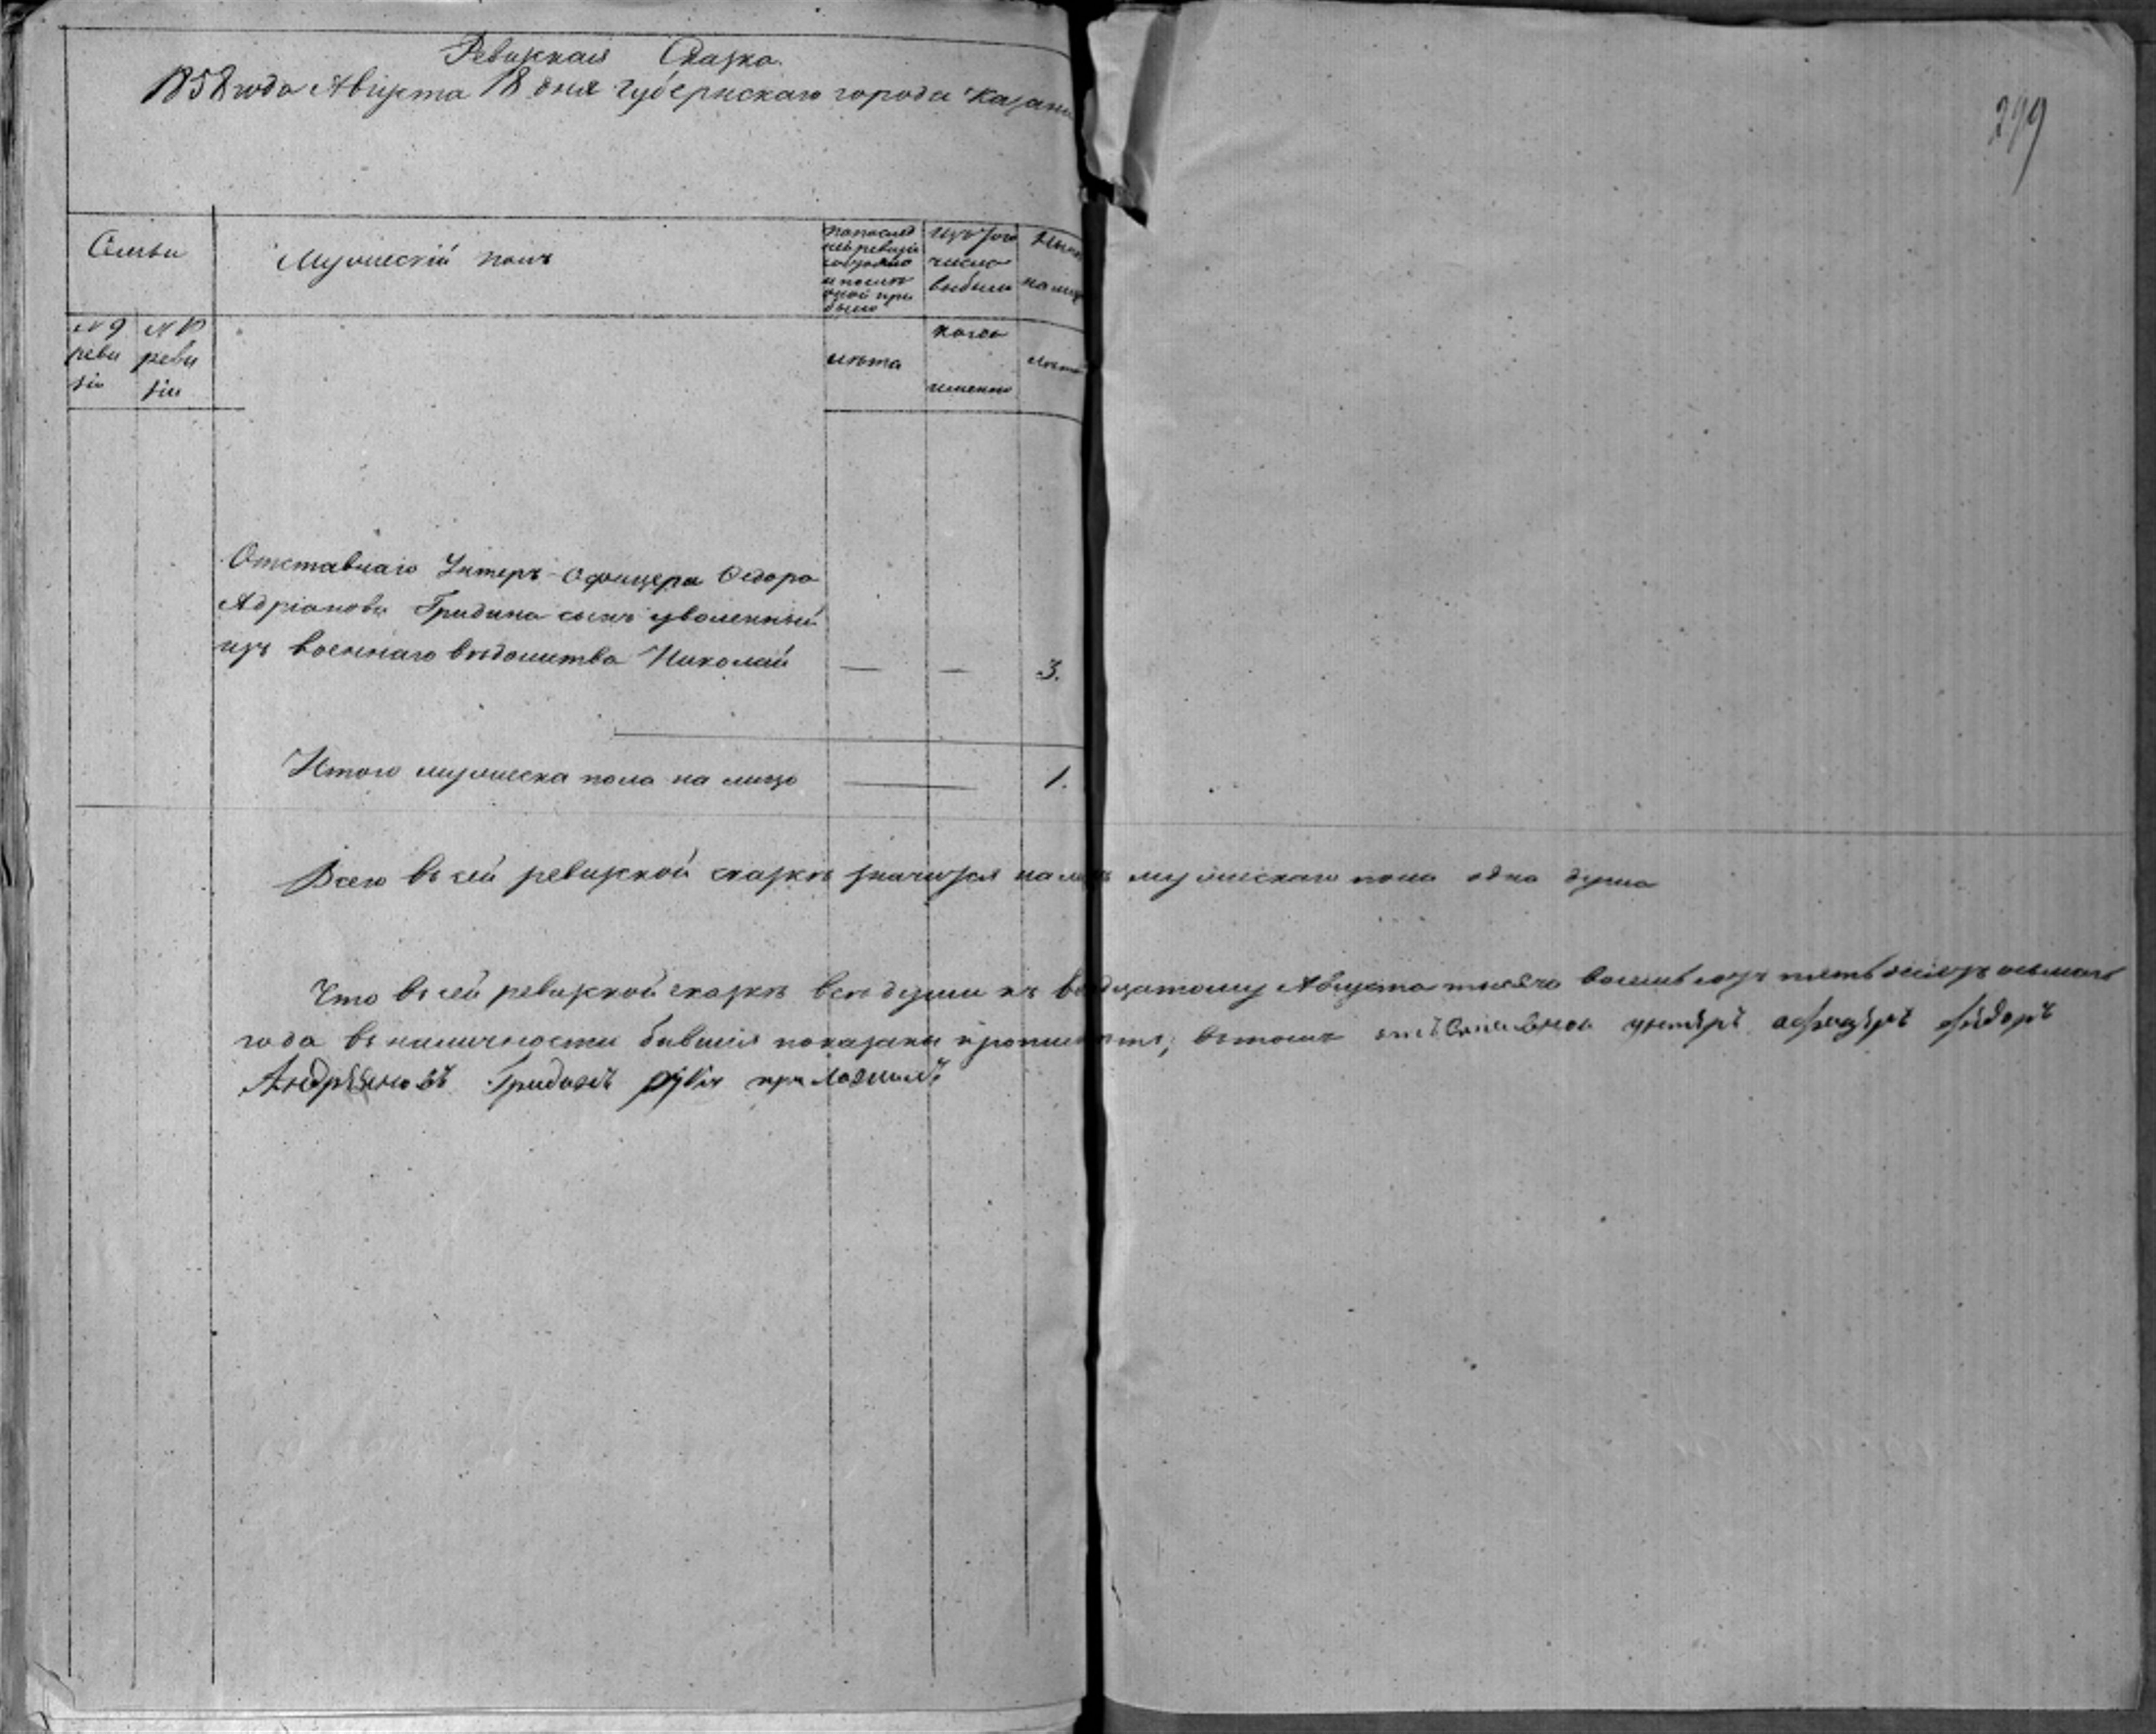 Ревижская Скажа.
1858 года Августа 18 дня Губернскаго города Казани
279
Семьи
Мужескій полъ
по послед
ней ревизіи
состояло
и после
оной при
было
Изъ того
число
выбыло
Ныне
на лицо
№ 9 реви зіи
№ 10 реви зіи
лѣта
когда
именно
лѣта
Отставнаго Унтеръ-Офицера Федора
Адріанова Гридина сынъ уволенный
изъ военнаго вѣдомства Николай — — 3.
Итого мужеска пола на лицо 1.
Всего въ сей ревижской скаскѣ значится на лицо мужескаго пола одна душа
Что въ сей ревижской скаскѣ всѣ души къ Августа тысяча восемь сотъ пятьдесятъ осьмаго
года въ наличности бывшія показаны и прописаны, въ томъ отъставной унтеръ афицеръ Фёдоръ
Андріяновъ Гридинъ руку приложилъ